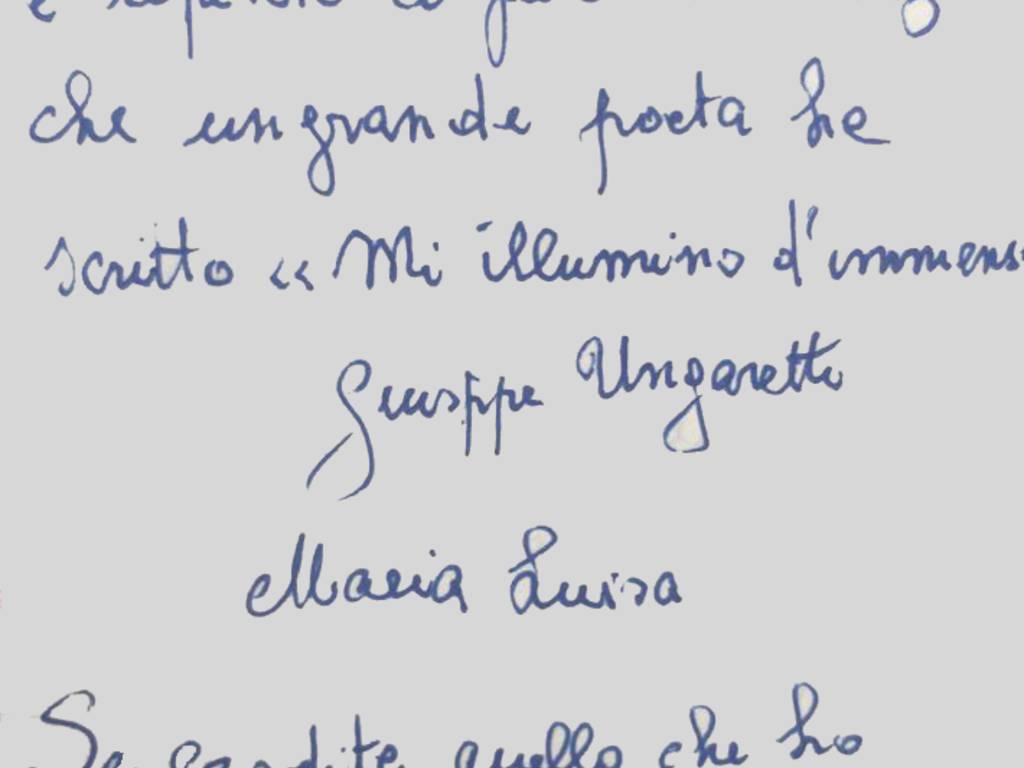 che un grande poeta ha
scritto « Mi illumino d'immens
Giuseppe Ungaretti
Maria Luisa
Se condite quello che ho